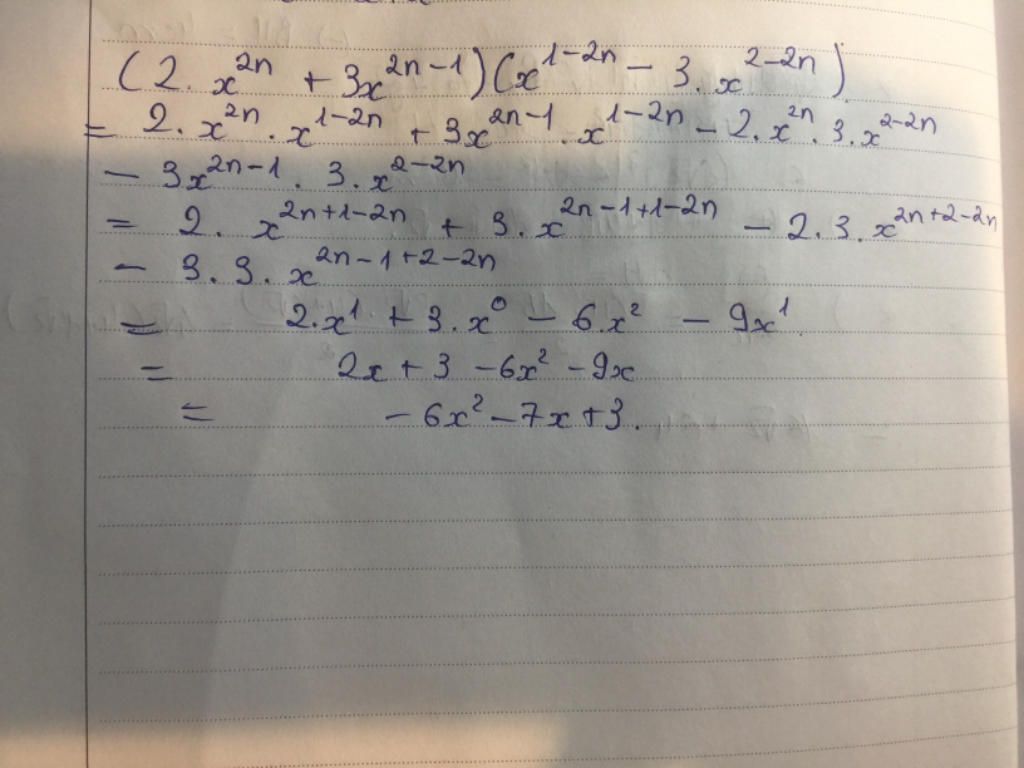 (2. x^{2n} + 3x^{2n-1})(x^{1-2n} - 3. x^{2-2n})
= 2. x^{2n} . x^{1-2n} + 3x^{2n-1} . x^{1-2n} - 2. x^{2n} . 3. x^{2-2n}
- 3x^{2n-1} . 3. x^{2-2n}
= 2. x^{2n+1-2n} + 3. x^{2n-1+1-2n} - 2. 3. x^{2n+2-2n}
- 3. 3. x^{2n-1+2-2n}
= 2. x^1 + 3. x^0 - 6. x^2 - 9x^1
= 2x + 3 - 6x^2 - 9x
= - 6x^2 - 7x + 3.